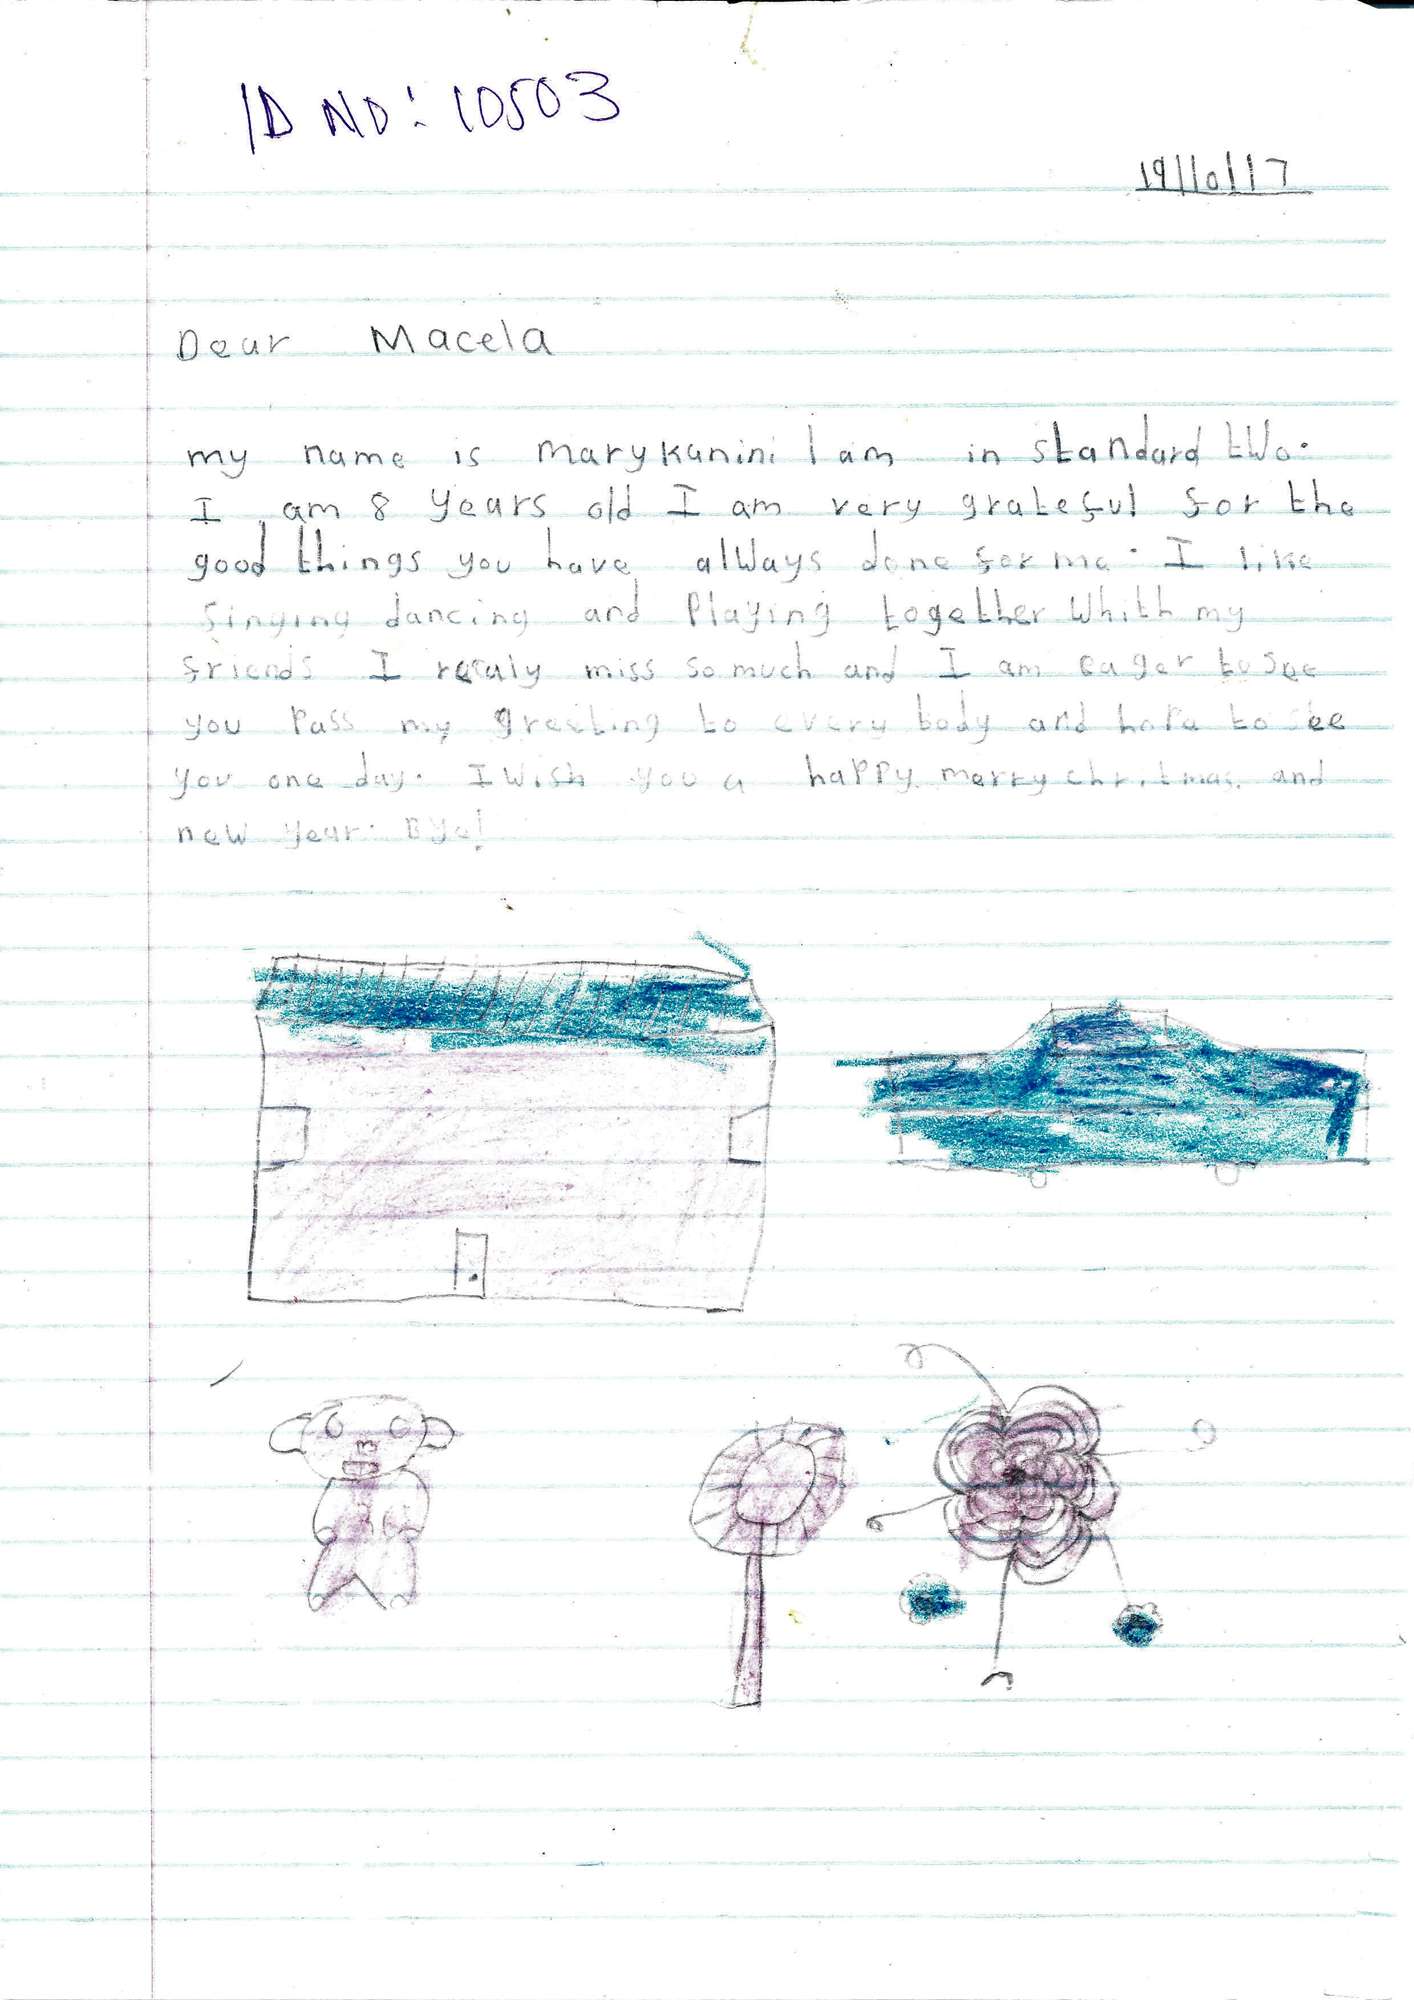 ID NO: 10503
19/10/17
Dear Macela
my name is marykanini I am in standard two.
I am 8 years old I am very grateful for the
good things you have always done for me. I like
singing dancing and Playing together Whith my
friends I realy miss so much and I am eager to see
you Pass my greeting to every body and hope to see
you one day. I wish you a happy merry christmas and
new year. Bye!